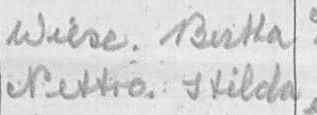 Wiese. Bertha
Nettro. Hilda